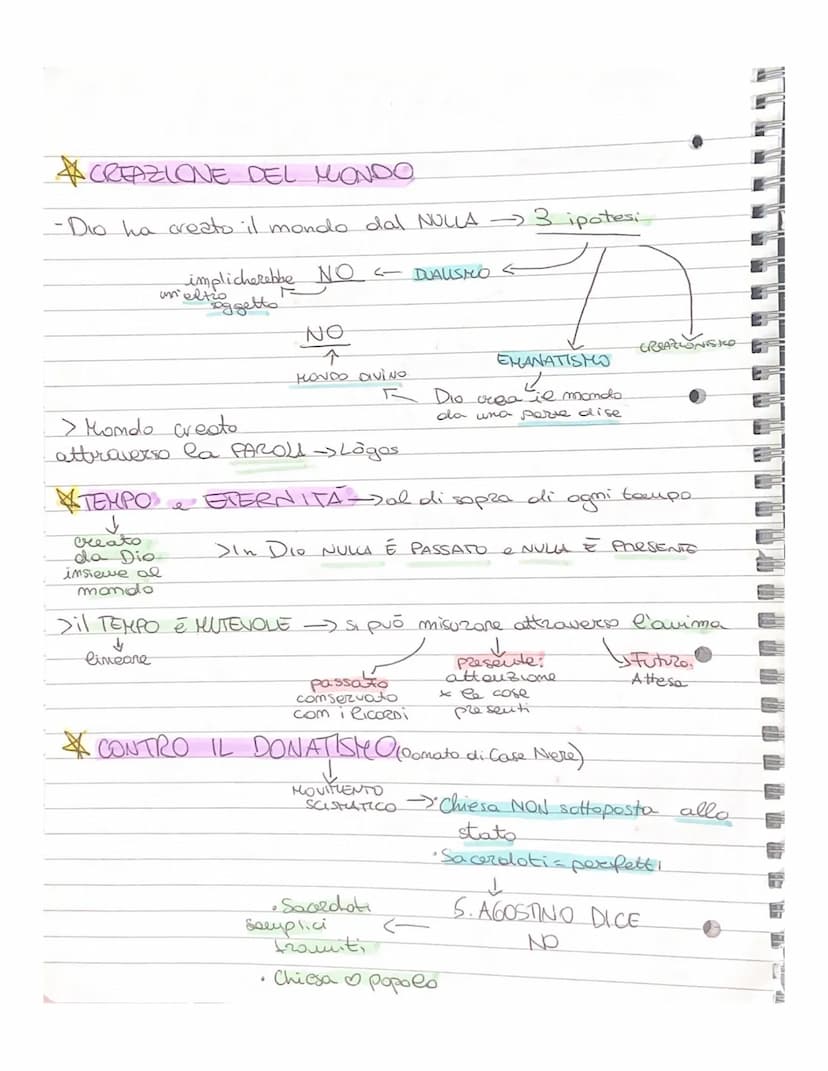 CREAZIONE DEL MONDO
- Dio ha creato il mondo dal NULLA → 3 ipotesi
implicherebbe NO ← DUALISMO ←
un'altro
soggetto
NO
↑
MONDO DIVINO
EMANATISMO
CREAZIONISMO
Dio crea il mondo
da una parte di se
> Mondo creato
attraverso la PAROLA → Lògos
TEMPO e ETERNITÀ → al di sopra di ogni tempo
↓
creato
da Dio
insieme al
mondo
> In Dio NULLA É PASSATO e NULLA É PRESENTE
> il TEMPO é MUTEVOLE → si può misurare attraverso l'anima
↓
lineare
passato
conservato
con i ricordi
presente:
attenzione
x le cose
presenti
Futuro:
Attesa
CONTRO IL DONATISMO (Donato di Case Nere)
↓
MOVIMENTO
SCISMATICO → • Chiesa NON sottoposta allo
stato
• Sacerdoti = perfetti
↓
S. AGOSTINO DICE
NO
←
• Sacerdoti
semplici
tramiti
• Chiesa ♡ popolo